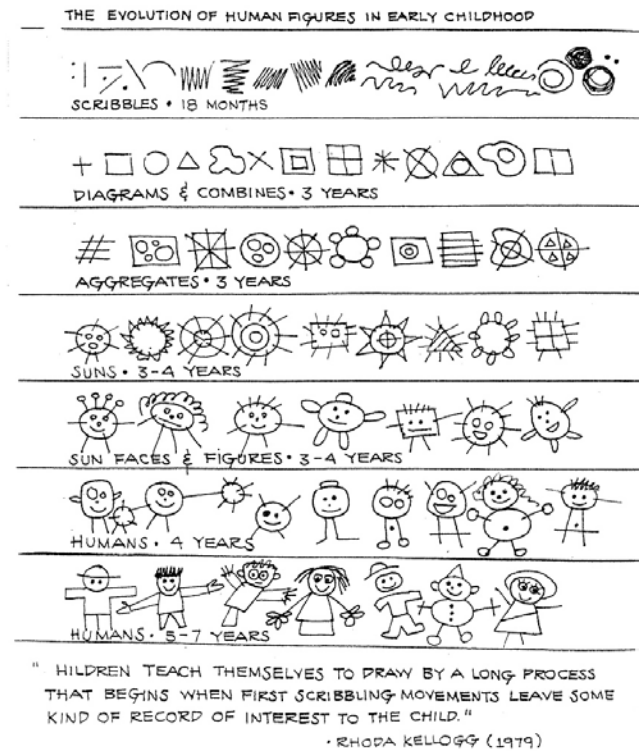 THE EVOLUTION OF HUMAN FIGURES IN EARLY CHILDHOOD
SCRIBBLES • 18 MONTHS
DIAGRAMS & COMBINES • 3 YEARS
AGGREGATES • 3 YEARS
SUNS • 3-4 YEARS
SUN FACES & FIGURES • 3-4 YEARS
HUMANS • 4 YEARS
HUMANS • 5-7 YEARS
" HILDREN TEACH THEMSELVES TO DRAW BY A LONG PROCESS
THAT BEGINS WHEN FIRST SCRIBBLING MOVEMENTS LEAVE SOME
KIND OF RECORD OF INTEREST TO THE CHILD."
• RHODA KELLOGG (1979)